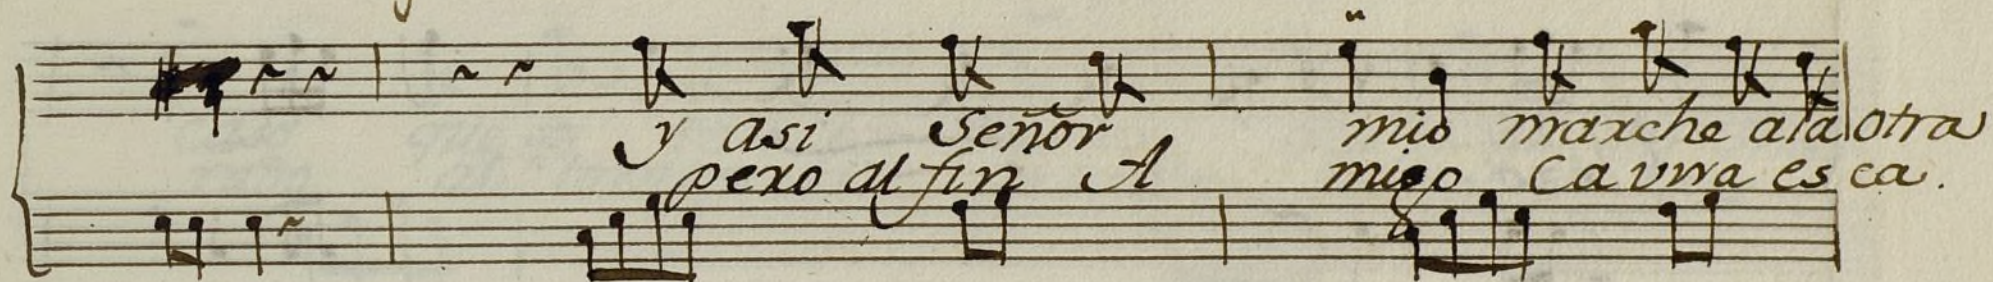 y asi Señor mio marche ala otra
pero al fin A migo Ca una es ca.